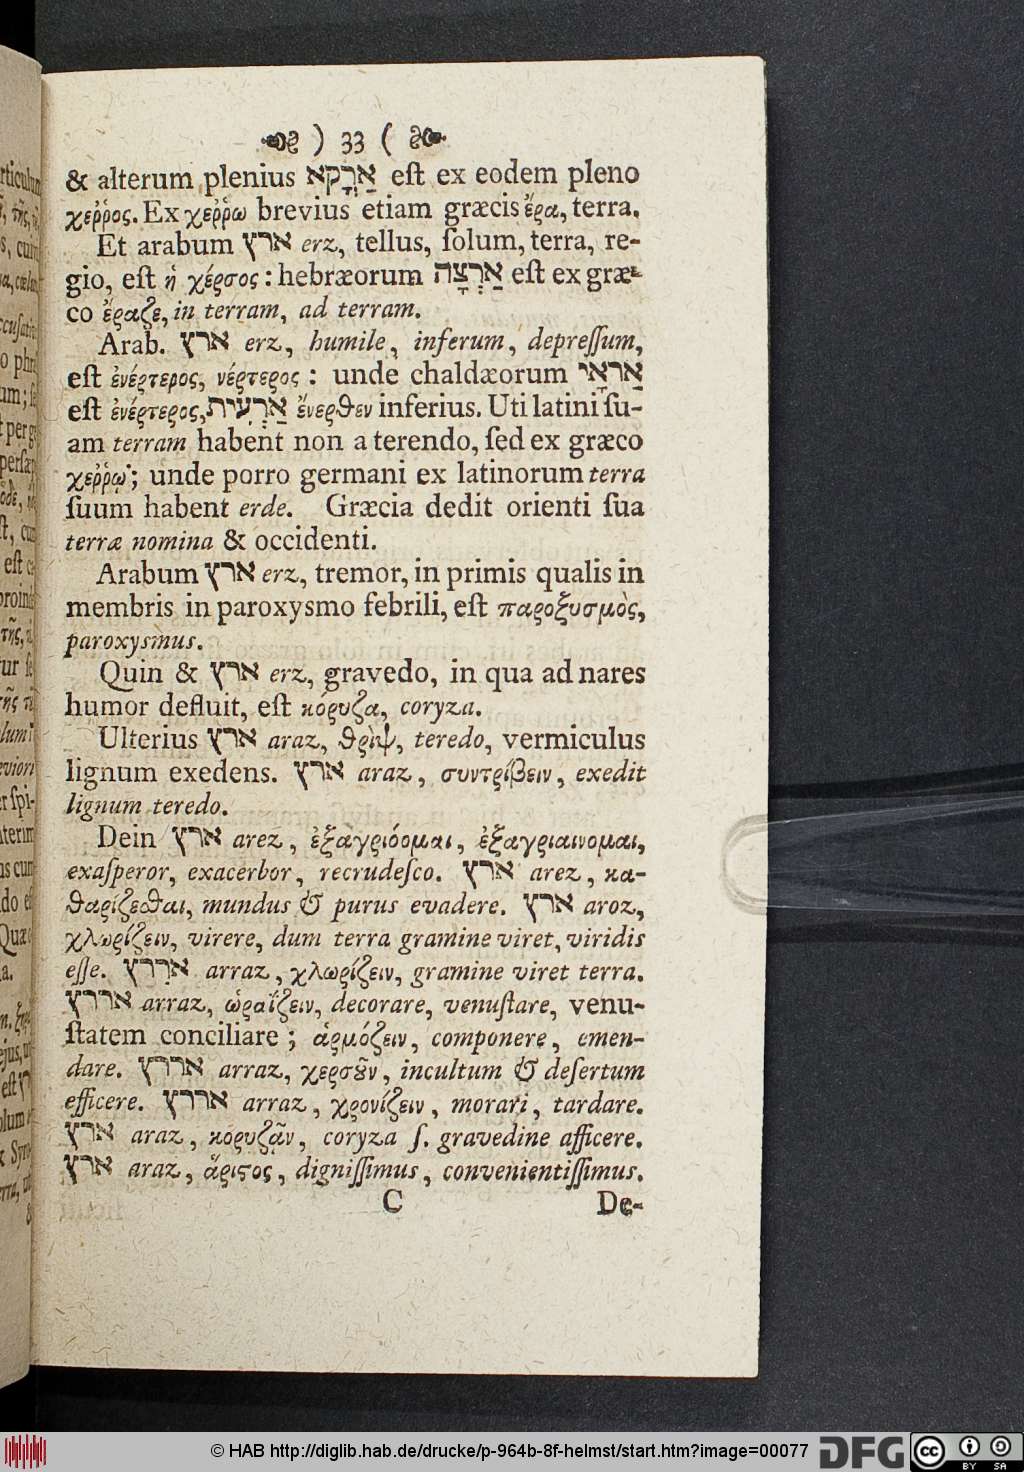 ) 33 (
& alterum plenius אַרְקָא eſt ex eodem pleno
χεῤῥος. Ex χεῤῥω brevius etiam græcis ἔρα, terra.
Et arabum ארץ erz, tellus, ſolum, terra, re-
gio, eſt ἡ χέρσος: hebræorum אַרְצָה eſt ex græ-
co ἔραζε, in terram, ad terram.
Arab. ארץ erz, humile, inferum, depreſſum,
eſt ἐνέρτερος, νέρτερος: unde chaldæorum אַרְאָי
eſt ἐνέρτερος, אַרְעִית ἔνερθεν inferius. Uti latini ſu-
am terram habent non a terendo, ſed ex græco
χεῤῥῳ; unde porro germani ex latinorum terra
ſuum habent erde. Græcia dedit orienti ſua
terræ nomina & occidenti.
Arabum ארץ erz, tremor, in primis qualis in
membris in paroxysmo febrili, eſt παροξυσμὸς,
paroxysmus.
Quin & ארץ erz, gravedo, in qua ad nares
humor defluit, eſt κόρυζα, coryza.
Ulterius ארץ araz, θρὶψ, teredo, vermiculus
lignum exedens. ארץ araz, συντρίβειν, exedit
lignum teredo.
Dein ארץ arez, ἐξαγριόομαι, ἐξαγριαινομαι,
exaſperor, exacerbor, recrudeſco. ארץ arez, κα-
θαρίζεσθαι, mundus & purus evadere. ארץ aroz,
χλωρίζειν, virere, dum terra gramine viret, viridis
eſſe. אררץ arraz, χλωρίζειν, gramine viret terra.
אררץ arraz, ὡραΐζειν, decorare, venuſtare, venu-
ſtatem conciliare; ἁρμόζειν, componere, emen-
dare. אררץ arraz, χερσȣ͂ν, incultum & deſertum
efficere. אררץ arraz, χρονίζειν, morari, tardare.
ארץ araz, κορυζᾷν, coryza ſ. gravedine afficere.
ארץ araz, ἄριστος, digniſſimus, convenientiſſimus.
C De-
© HAB http://diglib.hab.de/drucke/p-964b-8f-helmst/start.htm?image=00077
DFG
cc BY SA